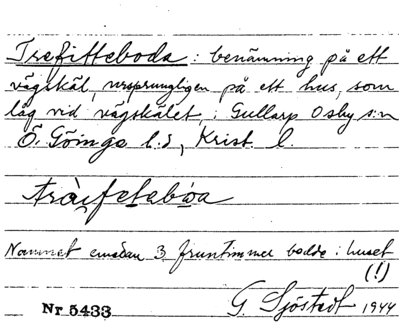 Trefitteboda : benämning på ett
vägskäl, ursprungligen på ett hus, som
låg vid vägskälet, i Gullarp Osby s:n
Ö. Göinge h.d, Krist. l.
Namnet emedan 3 fruntimmer bodde i huset
(!)
Nr 5433 G. Sjöstedt 1944